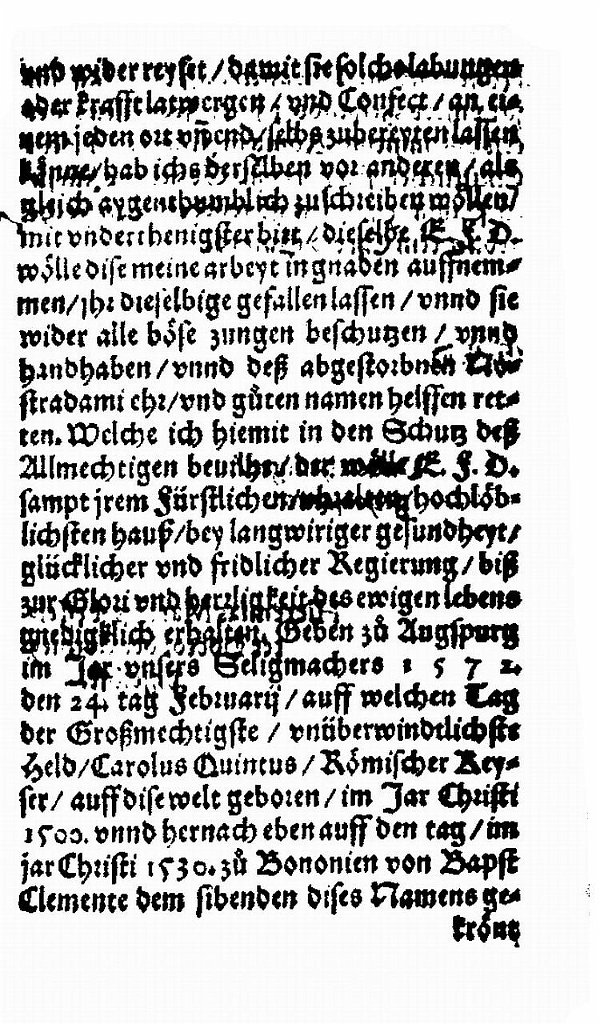 vnd wider reyset / damit sie solche labungen
oder krafft latwergen / vnd Confect / an ei⸗
nem jeden ort vñ end / selbs zubereyten lassen
könne / hab ichs derselben vor anderen / als
gleich aygenthumblich zuschreiben wöllen /
mit vnderthenigster bitt / dieselbe E. F. D.
wölle dise meine arbeyt in gnaden auffnem⸗
men / jhr dieselbige gefallen lassen / vnnd sie
wider alle böse zungen beschutzen / vnnd
handhaben / vnnd deß abgestorbnen No⸗
stradami ehr / vnd gůten namen helffen ret⸗
ten. Welche ich hiemit in den Schutz deß
Allmechtigen beuilhe / der wölle E. F. D.
sampt jrem Fürstlichen / vhralten / hochlöb⸗
lichsten hauß / bey langwiriger gesundheyt /
glücklicher vnd fridlicher Regierung / biß
zur Glori vnd herrligkeit des ewigen lebens
gnedigklich erhalten. Geben zů Augspurg
im Jar vnsers Seligmachers 1 5 7 2.
den 24. tag Februarij / auff welchen Tag
der Großmechtigste / vnüberwindtlichste
Held / Carolus Quintus / Römischer Key⸗
ser / auff dise welt geboren / im Jar Christi
1500. vnnd hernach eben auff den tag / im
jar Christi 1530. zů Bononien von Bapst
Clemente dem sibenden dises Namens ge⸗
krönt